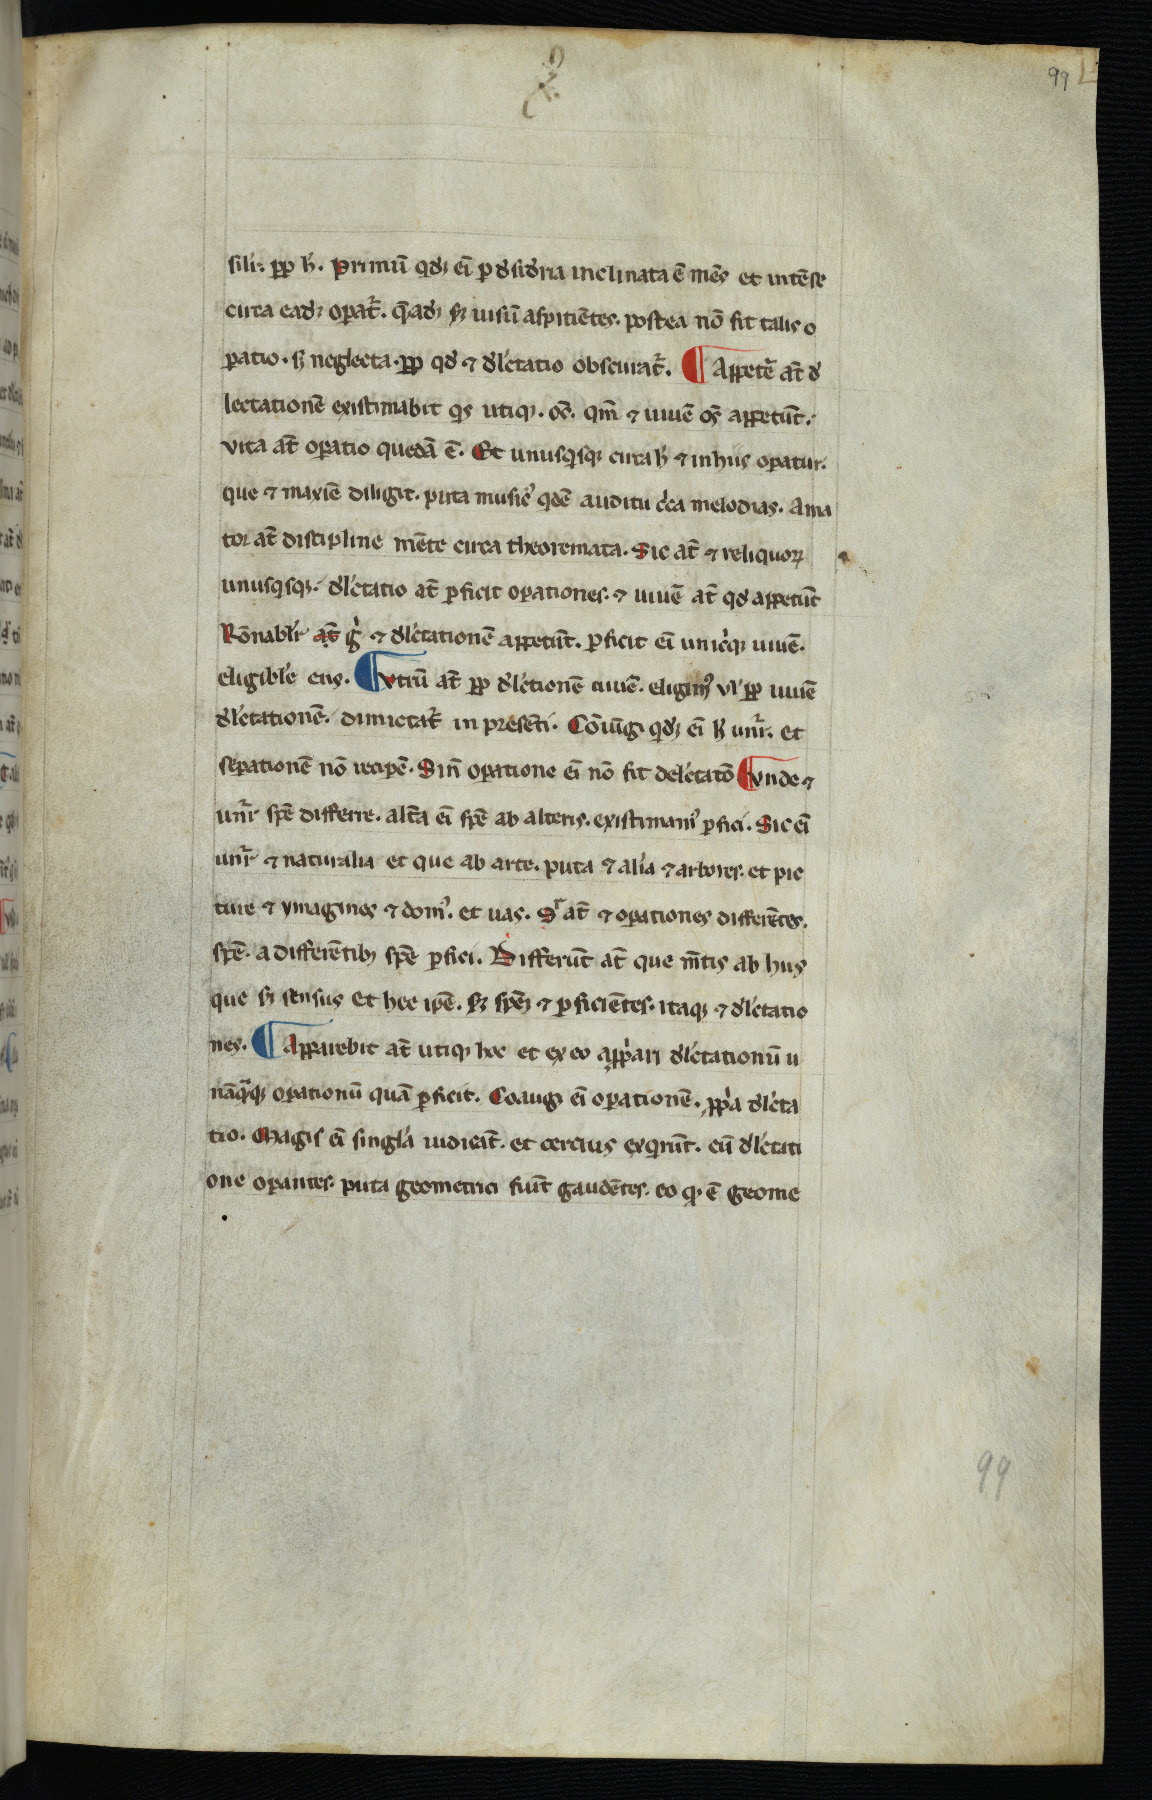 X
99
silir. pp̄ h̄. Primū qđꝫ ei̅ p dsiđria inclinata ē mēs et intēse
circa eadꝫ opat̄. q̄adꝫ sꝫ uisū aspitiētes. postea nō fit talis o
patio. sꝫ neglecta. pp̄ qđ ⁊ dlc̄tatio obscurat̄. ¶ Appete̅ at̄ d
lectationē existimabit qͥs utiqꝫ. oē. qm̄ ⁊ uiuē oēs appetūt.
vita at̄ opatio quedā ē. Et unusqͥsqꝫ circa h̄ ⁊ in hiis opatur.
que ⁊ maxīe diligit. puta musicꝰ qͥdē auditu cͥca melodias. Ama
tor at̄ discipline mēte circa theoremata. Sic at̄ ⁊ reliquoꝝ
unusqͥsqꝫ. dlc̄tatio at̄ pficit opationes. ⁊ uiuē at̄ qđ appetūt
Rōnabl̄r at̄ gͥ ⁊ dlc̄tationē appetūt. pficit ei̅ unicͥqꝫ uiuē.
eligible ens. ¶ vtrū at̄ pp̄ dlc̄tionē uiuē. eligimꝰ vl̄ pp̄ uiuē
dlc̄tationē. dimictat̄ in presēti. Cōiūgi qđꝫ ei̅ h̄ unr̄. et
sepationē nō recipē. Sin̄ opatione ei̅ nō fit delc̄tatō ¶ vnde ⁊
unr̄ spē differre. alt̄a ei̅ spē ab alteris. existimamꝰ pfici. Sic ei̅
unr̄ ⁊ naturalia et que ab arte. puta ⁊ alīa ⁊ arbores. et pic
ture ⁊ ymagines ⁊ domꝰ. et uas. Sr̄ at̄ ⁊ opationes differētes.
spē. a differētibꝫ spē pfici. Differūt at̄ que mētis ab hiis
que sꝫ sensus et hec ip̄e. sꝫ spēꝫ ⁊ pficiētes. itaqꝫ ⁊ dlc̄tatio
nes. ¶ Apparebit at̄ utiqꝫ hoc et ex eo app̄ari dlc̄tationū u
nāqͣqꝫ opationū quā pficit. Coaugꝫ ei̅ opationē. pp̄a dlc̄ta
tio. Magis ei̅ singl̄a iudicāt. et cercius exqͥrūt. cū dlc̄tati
one opantes. puta geometrici fiūt gaudētes. eo qꝫ ē geome
99